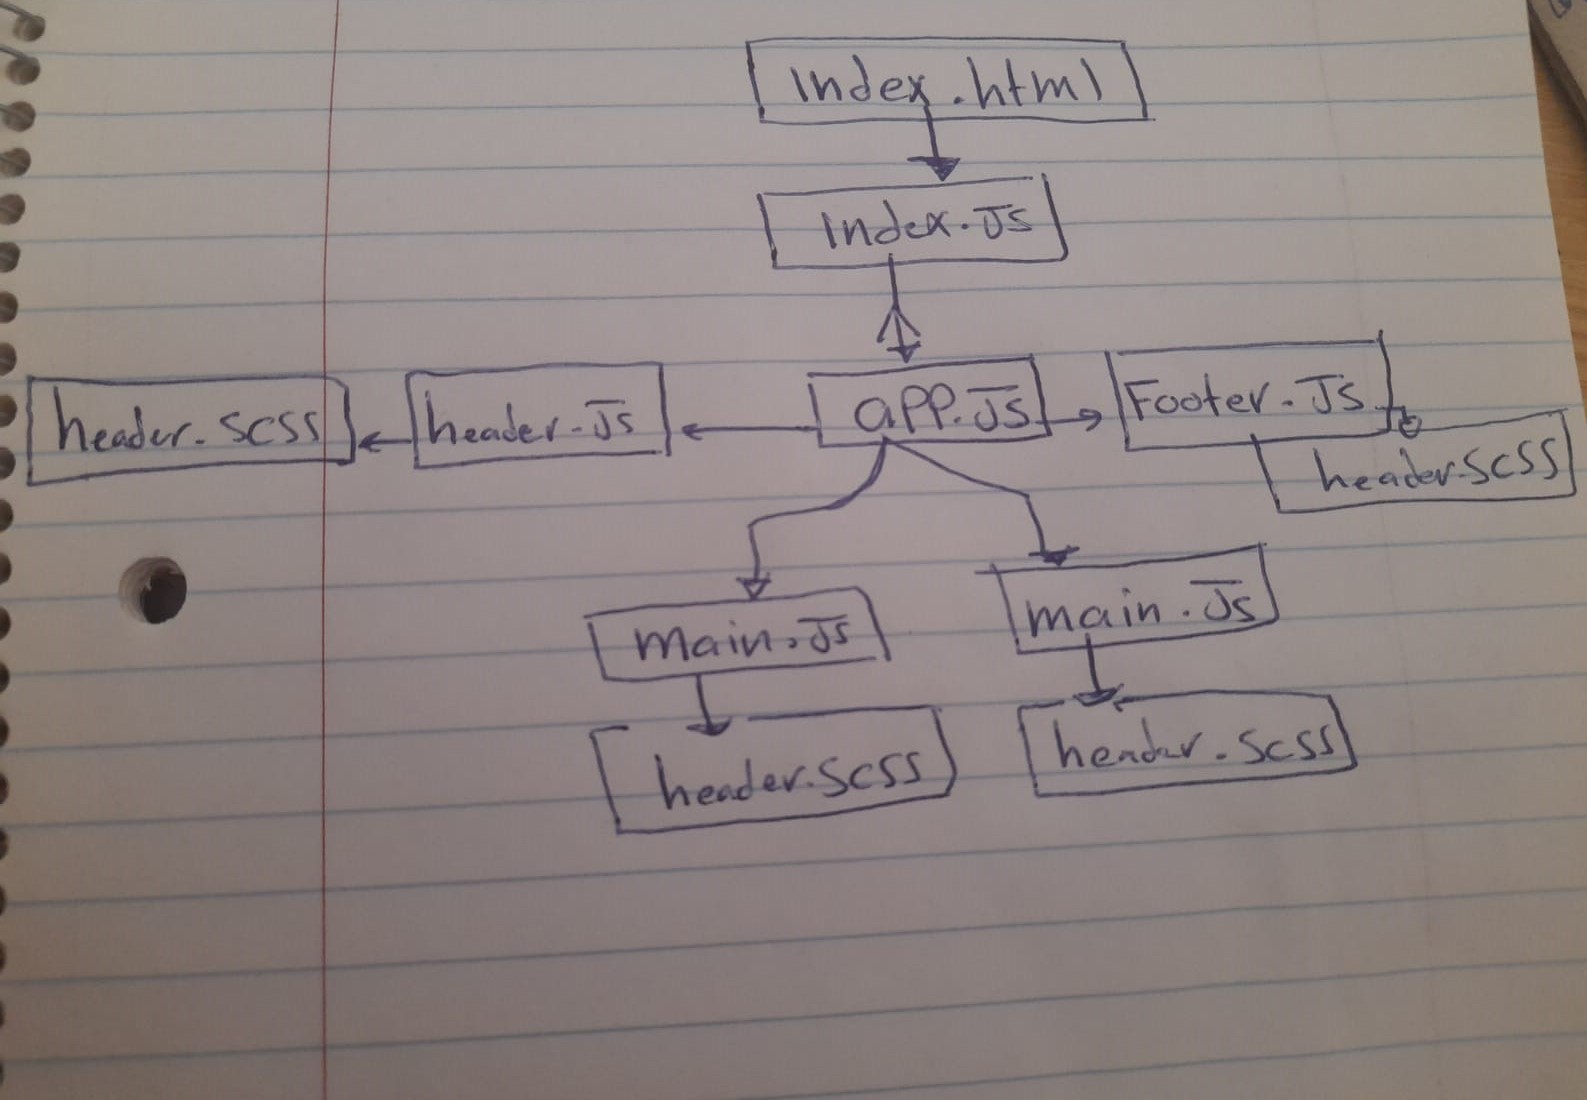 Index.html
Index.Js
header.scss
header.Js
app.Js
Footer.Js
header.scss
main.Js
main.Js
header.scss
header.scss